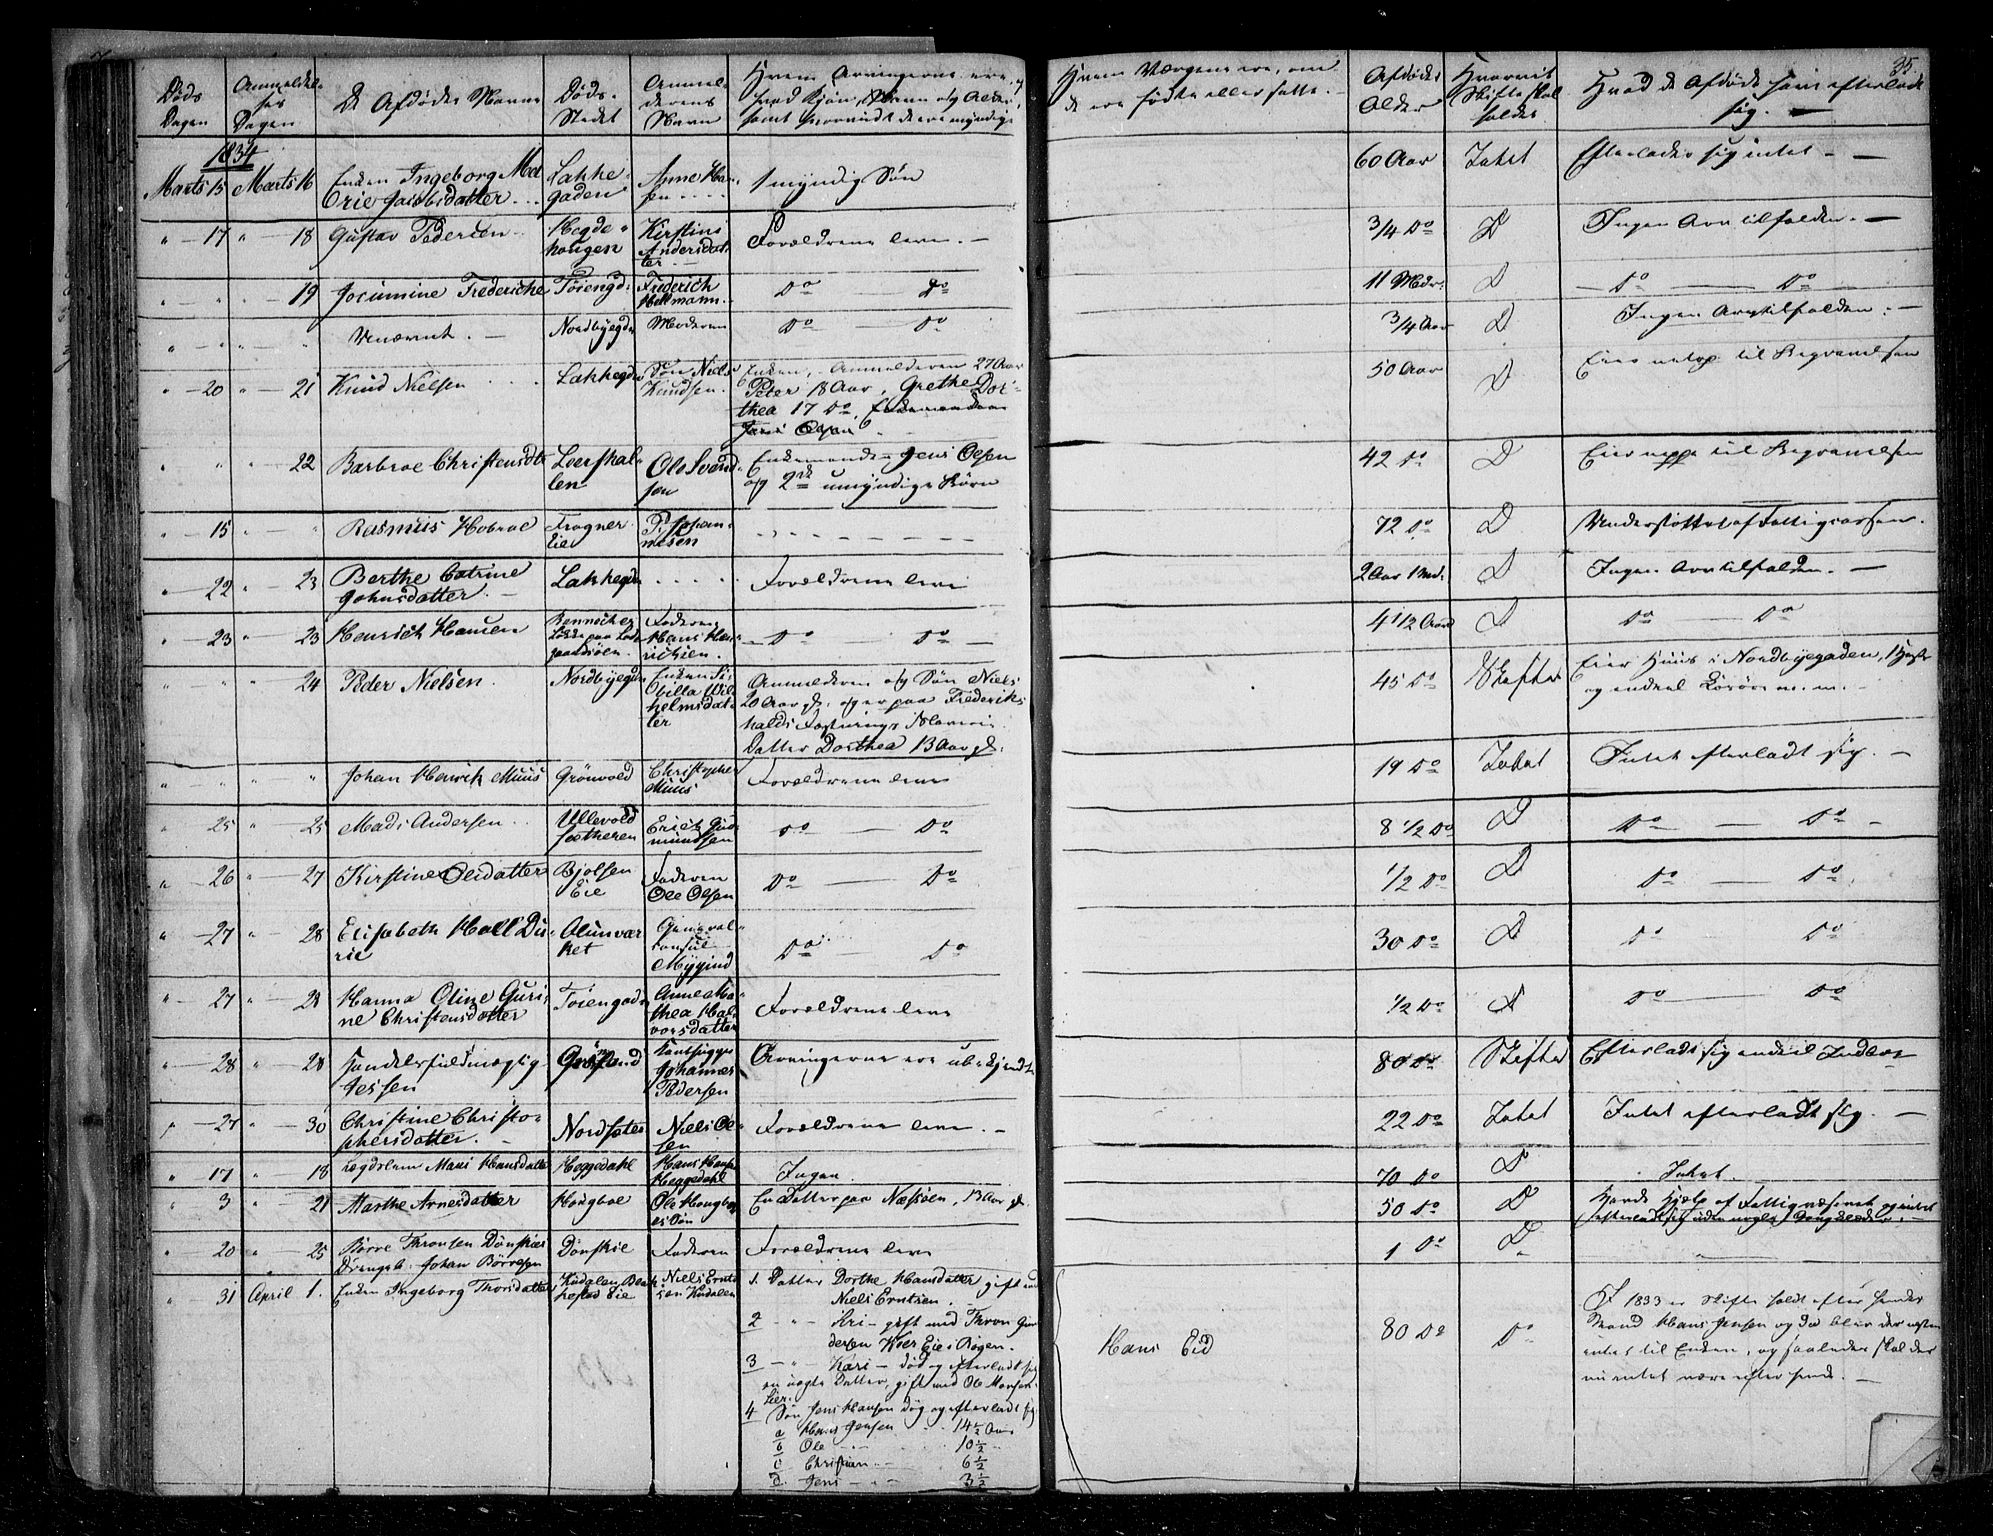 35.
Døds Dagen
Anmeldelses Dagen
De Afdødes Navne
Døds-Stedet
Anmelderens Navn
Hvem Arvingerne ere, af hvad Kjøn, Navn og Alder, samt hvorvidt de ere myndige
Hvem Værgene ere, om de ere fødte eller satte.
Afdødes Alder
Hvorvidt Skifte skal holdes
Hvad de Afdøde have efterladt sig.
1834
Marts 15 Marts 16 Enken Ingeborg Marie Jacobsdatter Lakkegaden Anne Hansen 1 myndig Søn 60 Aar Intet Efterlader sig intet
" 17 " 18 Gustav Pedersen Hegdehougen Kirstine Andersdatter Forældrene leve. 3/4 Do D Ingen Arv tilfalden.
" " " 19 Josumine Frederiche Tøiengd. Frederich Hellmann Do Do 11 Mdr. D Do Do
" " " " Unævnt. Nordbyegd. Moderen Do Do 3/4 Aar D Ingen Arv tilfalden.
" 20 " 21 Knud Nielsen Lakkegd. Søn Niels Knudsen Enken, Anmelderen 27 Aar Peter 18 Aar, Grethe Dorthea 17 Do. 50 Aar D Eier netop til Begravelsen
" " " 22 Barbroe Christensdtr Leerskallen Ole Svendsen Enkemand Jens Olsen og 2de umyndige Børn 42 Do D Eier neppe til Begravelsen
" 15 " " Rasmus Hobroe Frogner Eie P. Johannesen 72 Do D Understøttet af Fattigcassen.
" 22 " 23 Berthe Catrine Johnsdatter Lakkegd. Forældrene leve 2 Aar 1 Md. D Ingen Arv tilfalden.
" 23 " 23 Henrich Hansen Faderen Hans Henrichsen. Do Do 4 1/2 Aar D Do Do
" " " 24 Peder Nielsen. Nordbyegd. Enken Sibilla Wilhelmsdatter Anmelderen og Søn Niels 20 Aar gl. og er paa Frederikshalds Fæstnings Slaverie. Datter Dorthea 13 Aar gl. 45 Do Skifte Eier Huus i Nordbyegaden, 1 Hest og endeel Løsøre m. m.
" " " " Johan Henrich Muus Grønvold Christopher Muus Forældrene leve 19 Do Intet Intet efterladt sig.
" 25 " 25 Mads Andersen Ullevold sætheren Erich Gudmundsen Do Do 8 1/2 Do D Do Do
" 26 " 27 Kirstine Olsdatter Bjølsen Eie Faderen Ole Olsen Do Do 1/2 Do D Do Do
" 27 " 28 Elisabeth Hall Durie Alunværket General-konsul Mygind Do Do 30 Do D Do Do
" 27 " 28 Hanna Oline Gurine Christensdatter Tøiengaden Anne Mathea Halvorsdatter Forældrene leve 1/2 Do D Do Do
" 28 " 28 Handelsfuldmægtig Jessen Grønland Johannes Pedersen Arvingerne ere ubekjendte 80 Do Skifte Efterladt sig endeel Indboe
" 27 " 30 Christine Christophersdatter. Nordsæter Niels Olsen Forældrene leve. 22 Do Intet Intet efterladt sig.
" 17 " 18 Lægdslem Mari Hansdatter Heggedahl Hans Hansen Heggedahl Ingen 70 Do D Intet.
" 3 " 21 Marthe Arnesdatter Hougboe Ole Hougboe En Datter paa Næssøen, 13 Aar gl. 50 Do D Havde Hjælp af Fattigvæsenet og intet efterladt sig uden nogle Gangklæder.
" 20 " 25 Børre Thronsen Dønskies Drengeb. Johan Børresen Dønskie Faderen Forældrene leve 1 Do D
" 31 April 1. Enken Ingeborg Thorsdatter Kudalen Eie Niels Erntsen Kudalen
1. Datter Dorthe Hansdatter gift med Niels Erntsen.
2 " " Siri gift med Thron Gundersen Eie i Bogen.
3 " " Kari død og efterladt sig en ægte Datter, gift med Ole Hansen Lier.
4 Søn Jens Hansen død og efterladt sig
a Hans Jensen 14 1/2 Aar
b Ole 10 1/2
c Christian 6 1/2
d. Jens 3 1/2
Hans Eid
80 Do
Do
I 1833 er Skifte holdt efter hendes Mand Hans Jensen og da blev der næsten intet til Enken, og saaledes skal der nu intet være efter hende.